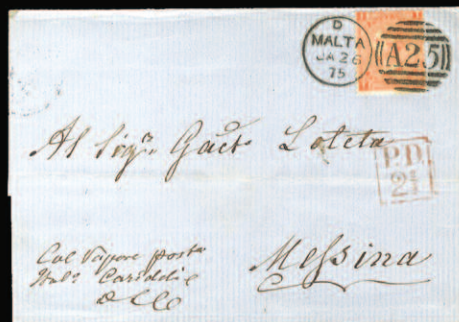 D
MALTA
JA 26
75
A25
Al Sigr. Gaet. Loteta
P.D.
Col Vapore post
Messina